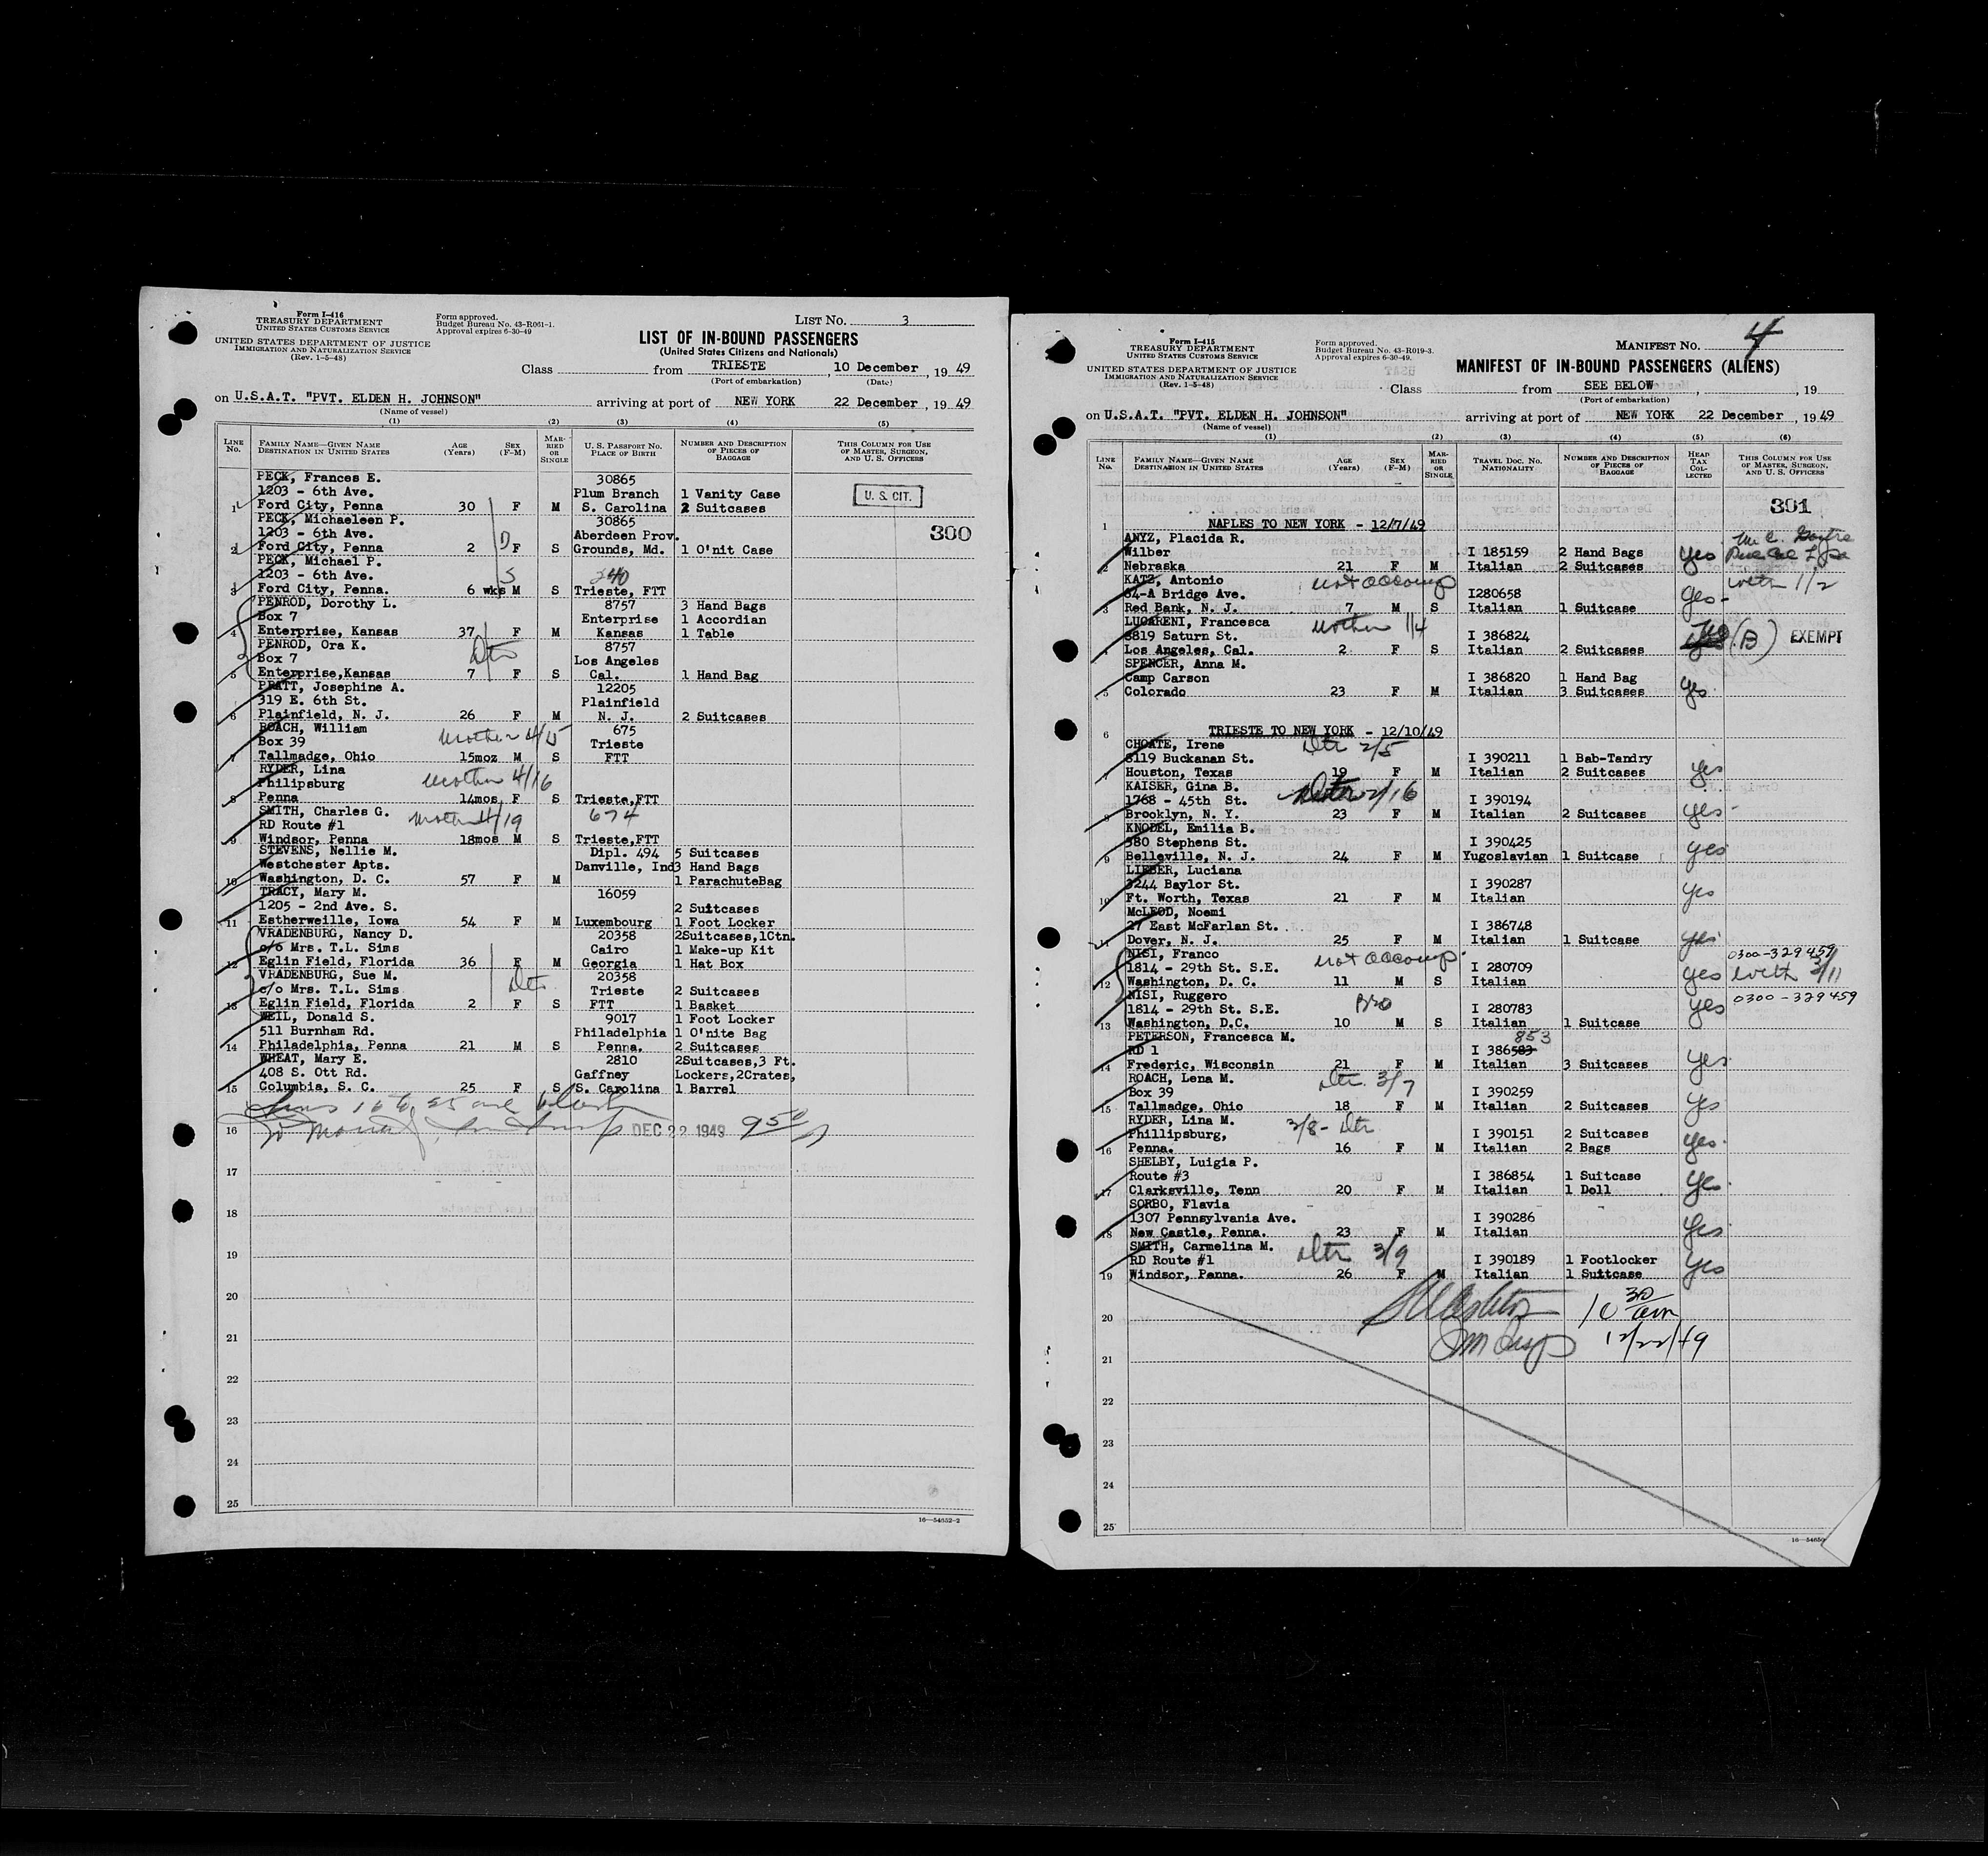 Form I-416
TREASURY DEPARTMENT
UNITED STATES CUSTOMS SERVICE
UNITED STATES DEPARTMENT OF JUSTICE
IMMIGRATION AND NATURALIZATION SERVICE
(Rev. 1-5-48)
Form approved.
Budget Bureau No. 43-R061-1.
Approval expires 6-30-49
LIST NO. 3
LIST OF IN-BOUND PASSENGERS
(United States Citizens and Nationals)
Class from TRIESTE, 10 December, 19 49
(Port of embarkation) (Date)
on U.S.A.T. "PVT. ELDEN H. JOHNSON" arriving at port of NEW YORK 22 December, 19 49
(Name of vessel)
(1) (2) (3) (4) (5)
LINE NO. FAMILY NAME—GIVEN NAME DESTINATION IN UNITED STATES AGE (Years) SEX (F-M) MARRIED OR SINGLE U. S. PASSPORT NO. PLACE OF BIRTH NUMBER AND DESCRIPTION OF PIECES OF BAGGAGE THIS COLUMN FOR USE OF MASTER, SURGEON, AND U. S. OFFICERS
PECK, Frances E. 30865
1203 - 6th Ave. Plum Branch 1 Vanity Case U. S. CIT.
1 Ford City, Penna 30 F M S. Carolina 2 Suitcases
PECK, Michaeleen P. 30865 300
1203 - 6th Ave. Aberdeen Prov.
2 Ford City, Penna 2 D F S Grounds, Md. 1 O'nit Case
PECK, Michael P.
1203 - 6th Ave. S 240
3 Ford City, Penna. 6 wks M S Trieste, FTT
PENROD, Dorothy L. 8757 3 Hand Bags
Box 7 Enterprise 1 Accordian
4 Enterprise, Kansas 37 F M Kansas 1 Table
PENROD, Ora K. Dtr 8757
Box 7 Los Angeles
5 Enterprise,Kansas 7 F S Cal. 1 Hand Bag
PRATT, Josephine A. 12205
319 E. 6th St. Plainfield
6 Plainfield, N. J. 26 F M N. J. 2 Suitcases
ROACH, William Mother 4/15 675
Box 39 Trieste
7 Tallmadge, Ohio 15moz M S FTT
RYDER, Lina Mother 4/16
Philipsburg
8 Penna 14mos F S Trieste,FTT
SMITH, Charles G. Mother 4/19 674
RD Route #1
9 Windsor, Penna 18mos M S Trieste,FTT
STEVENS, Nellie M. Dipl. 494 5 Suitcases
Westchester Apts. Danville, Ind 3 Hand Bags
10 Washington, D. C. 57 F M 1 ParachuteBag
TRACY, Mary M. 16059
1205 - 2nd Ave. S. 2 Suitcases
11 Estherweille, Iowa 54 F M Luxembourg 1 Foot Locker
VRADENBURG, Nancy D. 20358 2Suitcases,1Ctn.
c/o Mrs. T.L. Sims Cairo 1 Make-up Kit
12 Eglin Field, Florida 36 F M Georgia 1 Hat Box
VRADENBURG, Sue M. Dtr 20358
c/o Mrs. T.L. Sims Trieste 2 Suitcases
13 Eglin Field, Florida 2 F S FTT 1 Basket
WEIL, Donald S. 9017 1 Foot Locker
511 Burnham Rd. Philadelphia 1 O'nite Bag
14 Philadelphia, Penna 21 M S Penna. 2 Suitcases
WHEAT, Mary E. 2810 2Suitcases,3 Ft.
408 S. Ott Rd. Gaffney Lockers,2Crates,
15 Columbia, S. C. 25 F S S. Carolina 1 Barrel
16 DEC 22 1949 9 50
17
18
19
20
21
22
23
24
25
16—54652-2
Form I-415
TREASURY DEPARTMENT
UNITED STATES CUSTOMS SERVICE
UNITED STATES DEPARTMENT OF JUSTICE
IMMIGRATION AND NATURALIZATION SERVICE
(Rev. 1-5-48)
Form approved.
Budget Bureau No. 43-R019-3.
Approval expires 6-30-49.
MANIFEST NO. 4
MANIFEST OF IN-BOUND PASSENGERS (ALIENS)
Class from SEE BELOW, , 19
(Port of embarkation)
on U.S.A.T. "PVT. ELDEN H. JOHNSON" arriving at port of NEW YORK 22 December, 19 49
(Name of vessel)
(1) (2) (3) (4) (5) (6)
LINE NO. FAMILY NAME—GIVEN NAME DESTINATION IN UNITED STATES AGE (Years) SEX (F-M) MARRIED OR SINGLE TRAVEL DOC. NO. NATIONALITY NUMBER AND DESCRIPTION OF PIECES OF BAGGAGE HEAD TAX COLLECTED THIS COLUMN FOR USE OF MASTER, SURGEON, AND U. S. OFFICERS
301
1 NAPLES TO NEW YORK - 12/7/49
ANYZ, Placida R.
Wilber I 185159 2 Hand Bags yes
2 Nebraska 21 F M Italian 2 Suitcases
KATZ, Antonio not accomp with 1/2
64-A Bridge Ave. I280658 yes-
3 Red Bank, N. J. 7 M S Italian 1 Suitcase
LUGARENI, Francesca Mother 1/4
8819 Saturn St. I 386824 (B) EXEMPT
4 Los Angeles, Cal. 2 F S Italian 2 Suitcases
SPENCER, Anna M.
Camp Carson I 386820 1 Hand Bag yes
5 Colorado 23 F M Italian 3 Suitcases
6 TRIESTE TO NEW YORK - 12/10/49
CHOATE, Irene Dtr 2/5
8119 Buckanan St. I 390211 1 Bab-Tandry yes
7 Houston, Texas 19 F M Italian 2 Suitcases
KAISER, Gina B. 2/16
1768 - 45th St. I 390194 yes-
8 Brooklyn, N. Y. 23 F M Italian 2 Suitcases
KNODEL, Emilia B.
380 Stephens St. I 390425 yes
9 Belleville, N. J. 24 F M Yugoslavian 1 Suitcase
LIEBER, Luciana
3244 Baylor St. I 390287 yes
10 Ft. Worth, Texas 21 F M Italian
McLEOD, Noemi
27 East McFarlan St. I 386748 yes
11 Dover, N. J. 25 F M Italian 1 Suitcase
NISI, Franco not accomp. 0300-329459
1814 - 29th St. S.E. I 280709 yes with 3/11
12 Washington, D. C. 11 M S Italian
NISI, Ruggero Bro yes 0300-329459
1814 - 29th St. S.E. I 280783
13 Washington, D.C. 10 M S Italian 1 Suitcase
PETERSON, Francesca M. 853
RD 1 I 386583 yes
14 Frederic, Wisconsin 21 F M Italian 3 Suitcases
ROACH, Lena M. Dtr. 3/7
Box 39 I 390259 yes
15 Tallmadge, Ohio 18 F M Italian 2 Suitcases
RYDER, Lina M. 3/8- Dtr
Phillipsburg, I 390151 2 Suitcases yes.
16 Penna. 16 F M Italian 2 Bags
SHELBY, Luigia P.
Route #3 I 386854 1 Suitcase yes.
17 Clarksville, Tenn 20 F M Italian 1 Doll
SORBO, Flavia
1307 Pennsylvania Ave. I 390286 yes
18 New Castle, Penna. 23 F M Italian
SMITH, Carmelina M. Dtr 3/9
RD Route #1 I 390189 1 Footlocker yes
19 Windsor, Penna. 26 F M Italian 1 Suitcase
20 10 30
21 12/22/49
22
23
24
25